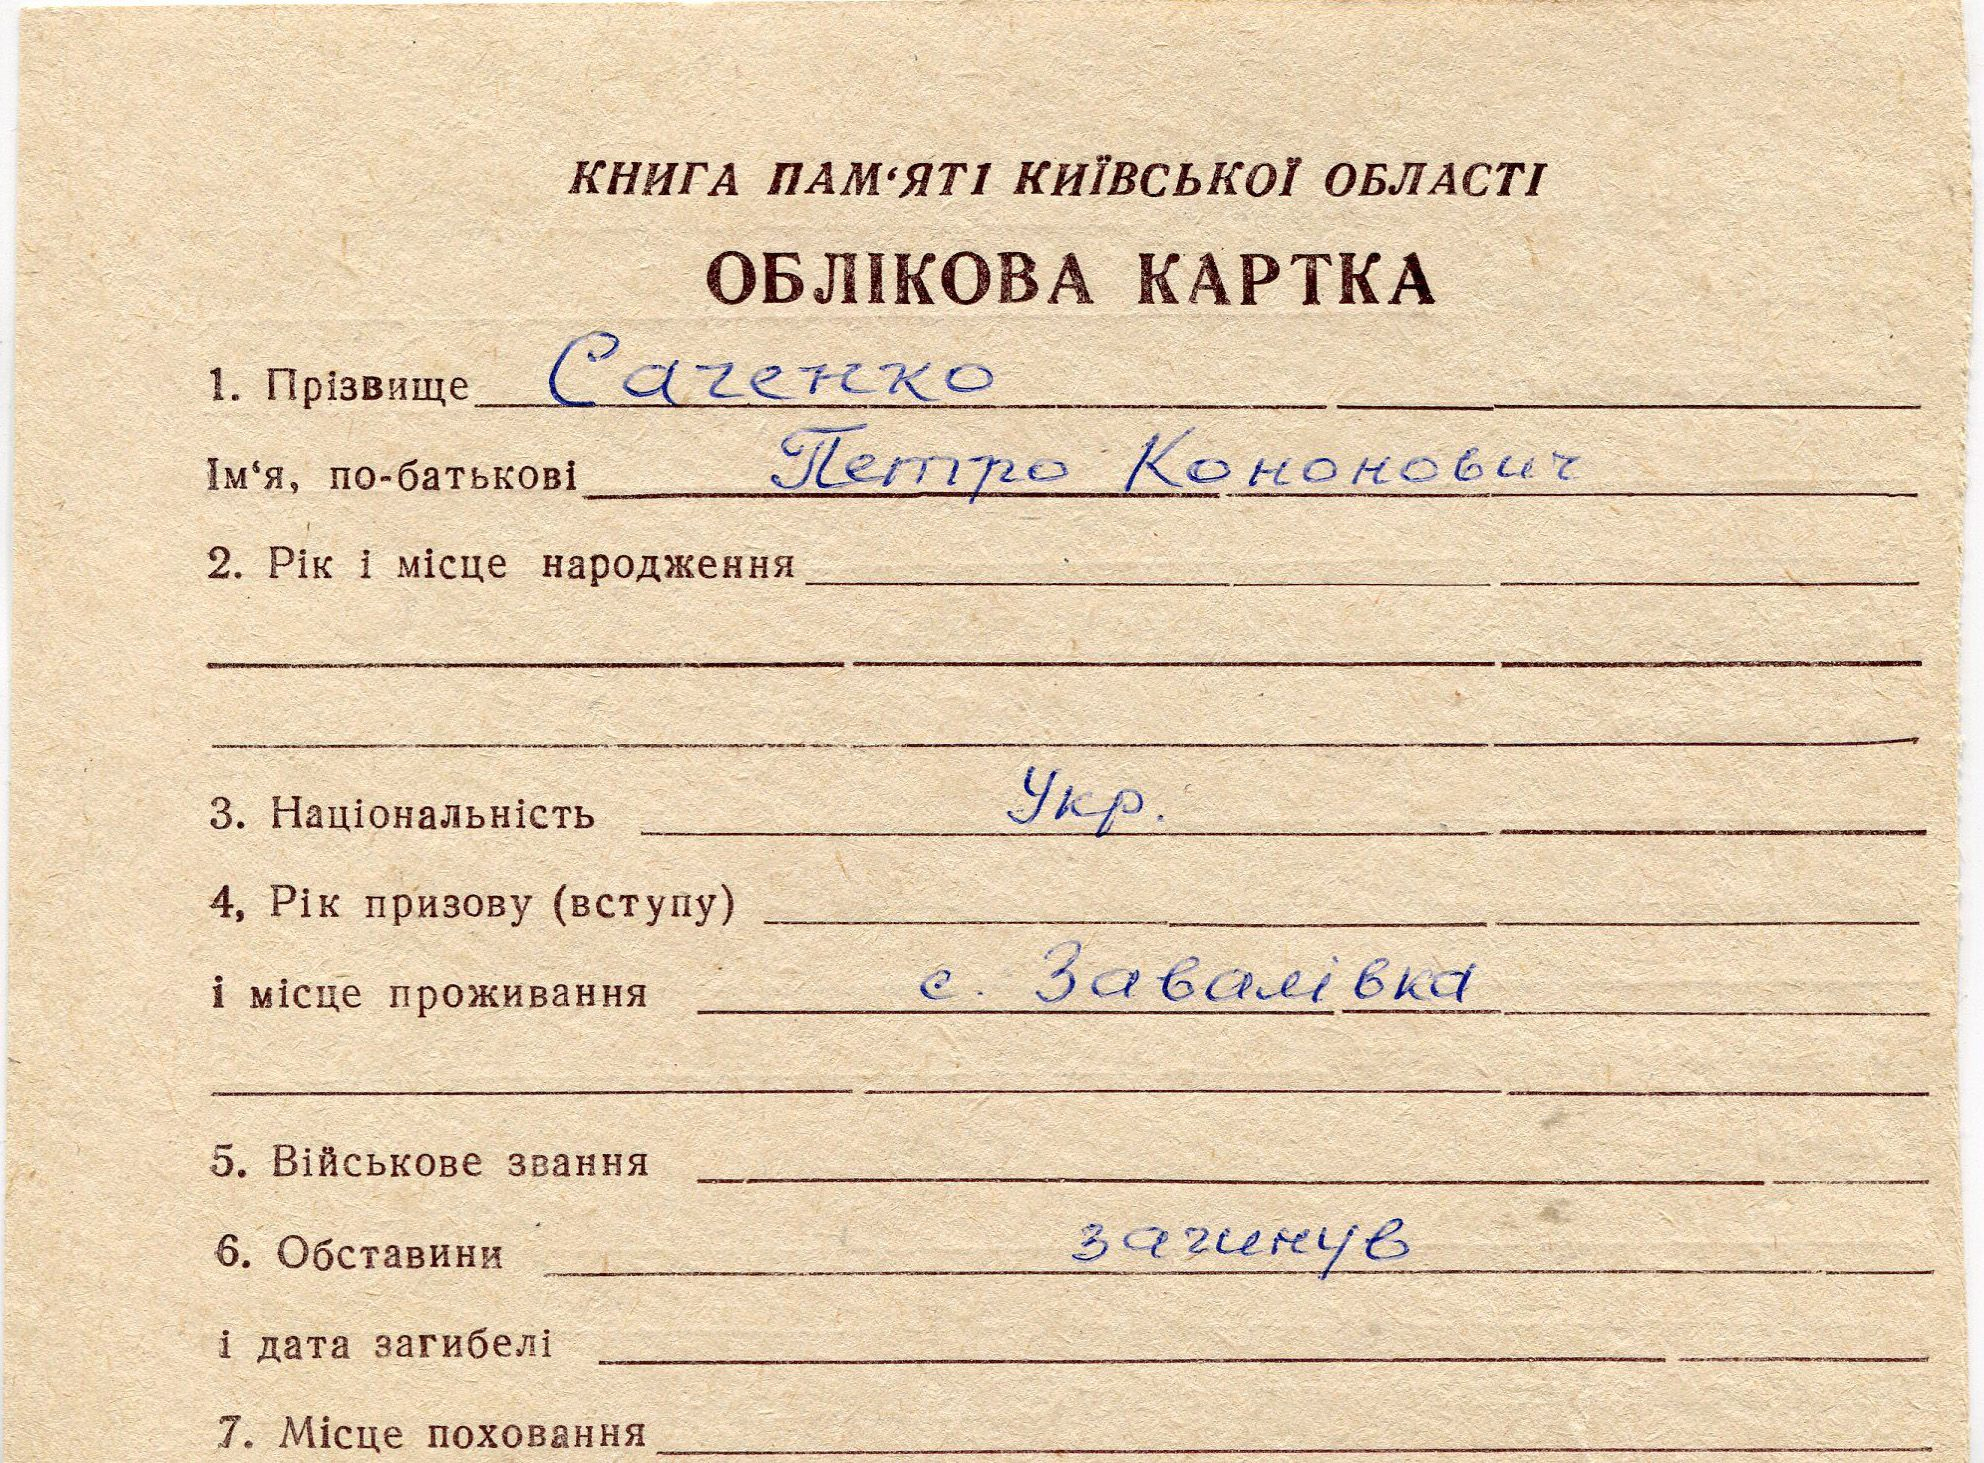 КНИГА ПАМ‘ЯТІ КИЇВСЬКОЇ ОБЛАСТІ
ОБЛІКОВА КАРТКА
1. Прізвище Саченко
Ім‘я, по-батькові Петро Кононович
2. Рік і місце народження
3. Національність Укр.
4, Рік призову (вступу)
і місце проживання с. Завалівка
5. Військове звання
6. Обставини загинув
і дата загибелі
7. Місце поховання